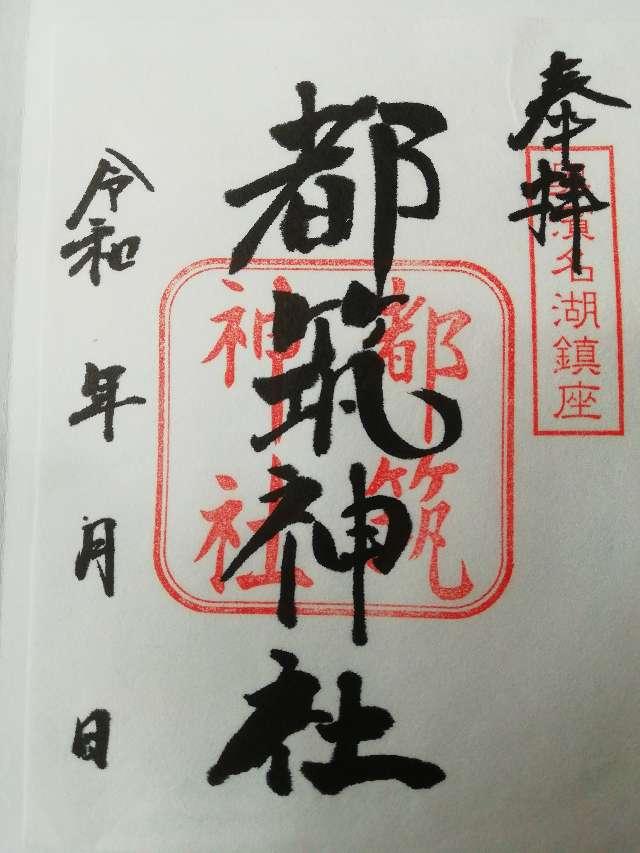 奉拝
濱名湖鎮座
都筑神社
都筑
神社
令和 年 月 日